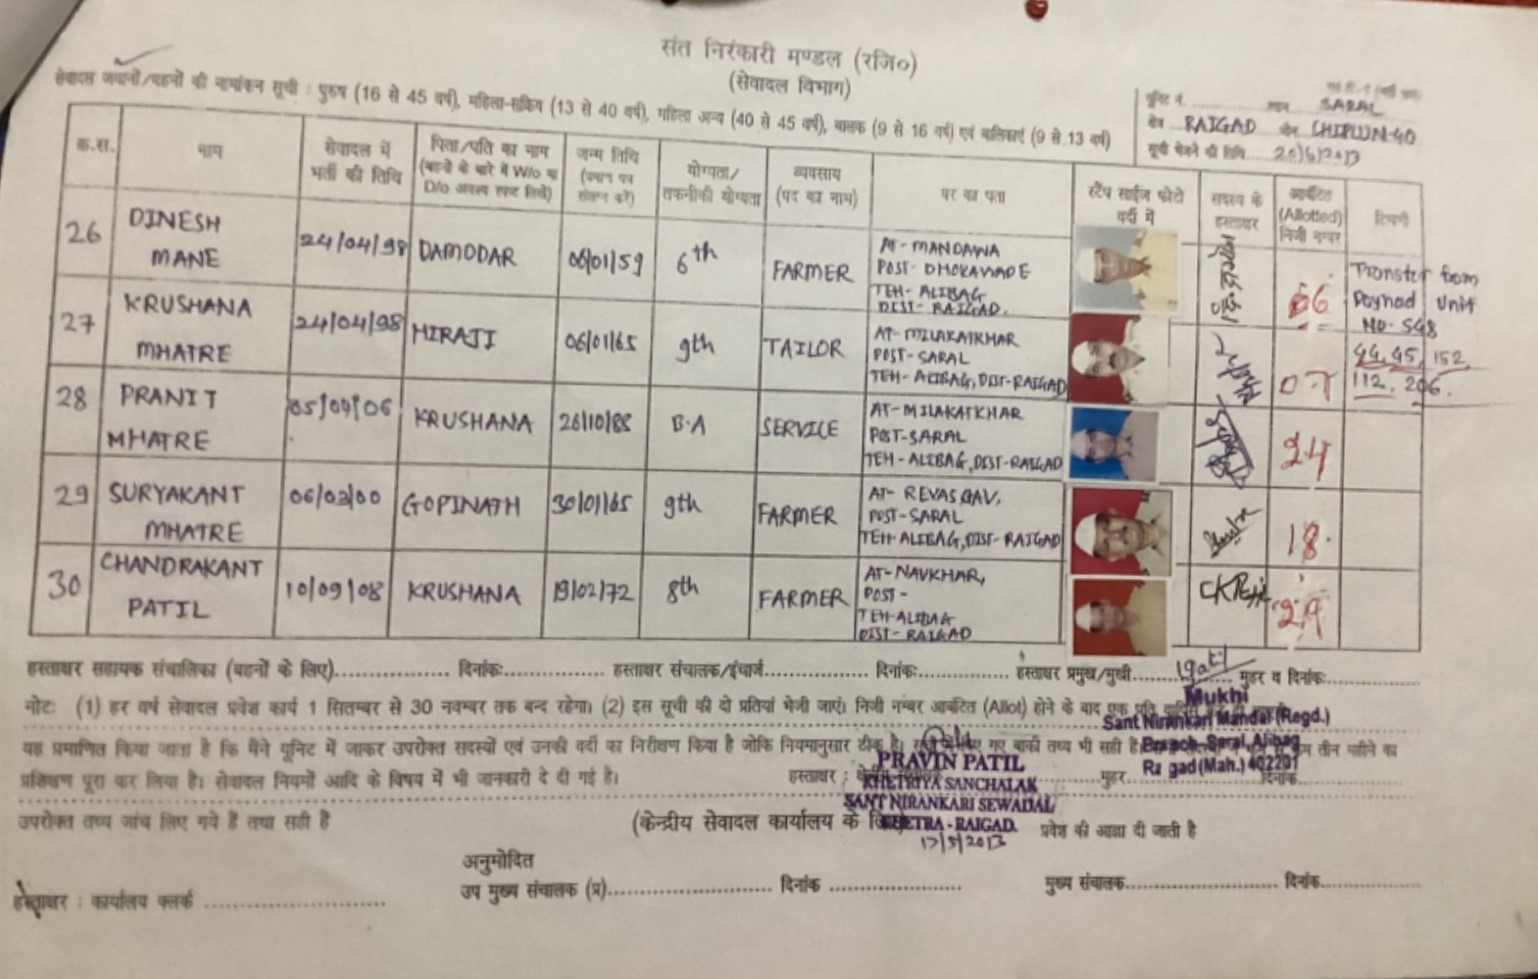 संत निरंकारी मण्डल (रजि०)
(सेवादल विभाग)
सेवादल जवानों/बहनों की नामांकन सूची : पुरुष (16 से 45 वर्ष), महिला-सक्रिय (13 से 40 वर्ष), महिला अन्य (40 से 45 वर्ष), बालक (9 से 16 वर्ष) एवं बालिकाएं (9 से 13 वर्ष)
यूनिट नं. ........ स्थान SARAL
क्षेत्र RAIGAD जोन CHIPLUN-40
सूची भेजने की तिथि 20/6/2013
क्र.स. नाम सेवादल में भर्ती की तिथि पिता/पति का नाम (बहनों के बारे में W/o या D/o अवश्य स्पष्ट लिखें) जन्म तिथि (प्रमाण पत्र संलग्न करें) योग्यता/तकनीकी योग्यता व्यवसाय (पद का नाम) घर का पता स्टैंप साईज फोटो वर्दी में सदस्य के हस्ताक्षर आबंटित (Allotted) निजी नम्बर टिप्पणी
26 DINESH MANE 24/04/98 DAMODAR 06/01/59 6th FARMER AT- MANDAWA
POST- DHOKAWADE
TEH- ALIBAG
DIST- RAIGAD.
66 Transfer from
Poynad Unit
NO- 548
27 KRUSHANA MHATRE 24/04/98 HIRAJI 06/01/65 9th TAILOR AT- MILAKATKHAR
POST- SARAL
TEH- ALIBAG, DIST-RAIGAD
07 44, 45, 152
112. 206.
28 PRANIT MHATRE 05/09/06 KRUSHANA 26/10/88 B.A SERVICE AT-MILAKATKHAR
POST-SARAL
TEH-ALIBAG, DIST-RAIGAD
24
29 SURYAKANT MHATRE 06/02/00 GOPINATH 30/01/65 9th FARMER AT- REVAS GAV,
POST-SARAL
TEH-ALIBAG, DIST-RAIGAD
18.
30 CHANDRAKANT PATIL 10/09/08 KRUSHANA 19/02/72 8th FARMER AT-NAVKHAR,
POST-
TEH-ALIBAG
DIST- RAIGAD
29
हस्ताक्षर सहायक संचालिका (बहनों के लिए)................. दिनांकः............... हस्ताक्षर संचालक/इंचार्ज................. दिनांकः............... हस्ताक्षर प्रमुख/मुखी............... मुहर व दिनांकः...............
Mukhi
Sant Nirankari Mandal (Regd.)
Branch-Saral, Alibag
Raigad (Mah.) 402201
नोटः (1) हर वर्ष सेवादल प्रवेश कार्य 1 सितम्बर से 30 नवम्बर तक बन्द रहेगा। (2) इस सूची की दो प्रतियां भेजी जाएं। निजी नम्बर आबंटित (Allot) होने के बाद एक प्रति
यह प्रमाणित किया जाता है कि मैंने यूनिट में जाकर उपरोक्त सदस्यों एवं उनकी वर्दी का निरीक्षण किया है जोकि नियमानुसार ठीक है। गए बाकी तथ्य भी सही है तीन महीने का
प्रशिक्षण पूरा कर लिया है। सेवादल नियमों आदि के विषय में भी जानकारी दे दी गई है। हस्ताक्षर : मुहर दिनांक
PRAVIN PATIL
KHETRIYA SANCHALAK
SANT NIRANKARI SEWADAL
KHETRA - RAIGAD.
17/5/2013
उपरोक्त तथ्य जांच लिए गये हैं तथा सही हैं (केन्द्रीय सेवादल कार्यालय के प्रवेश की आज्ञा दी जाती है
अनुमोदित
हस्ताक्षर : कार्यालय क्लर्क ........................ उप मुख्य संचालक (प्र)...................... दिनांक .................. मुख्य संचालक...................... दिनांक...............